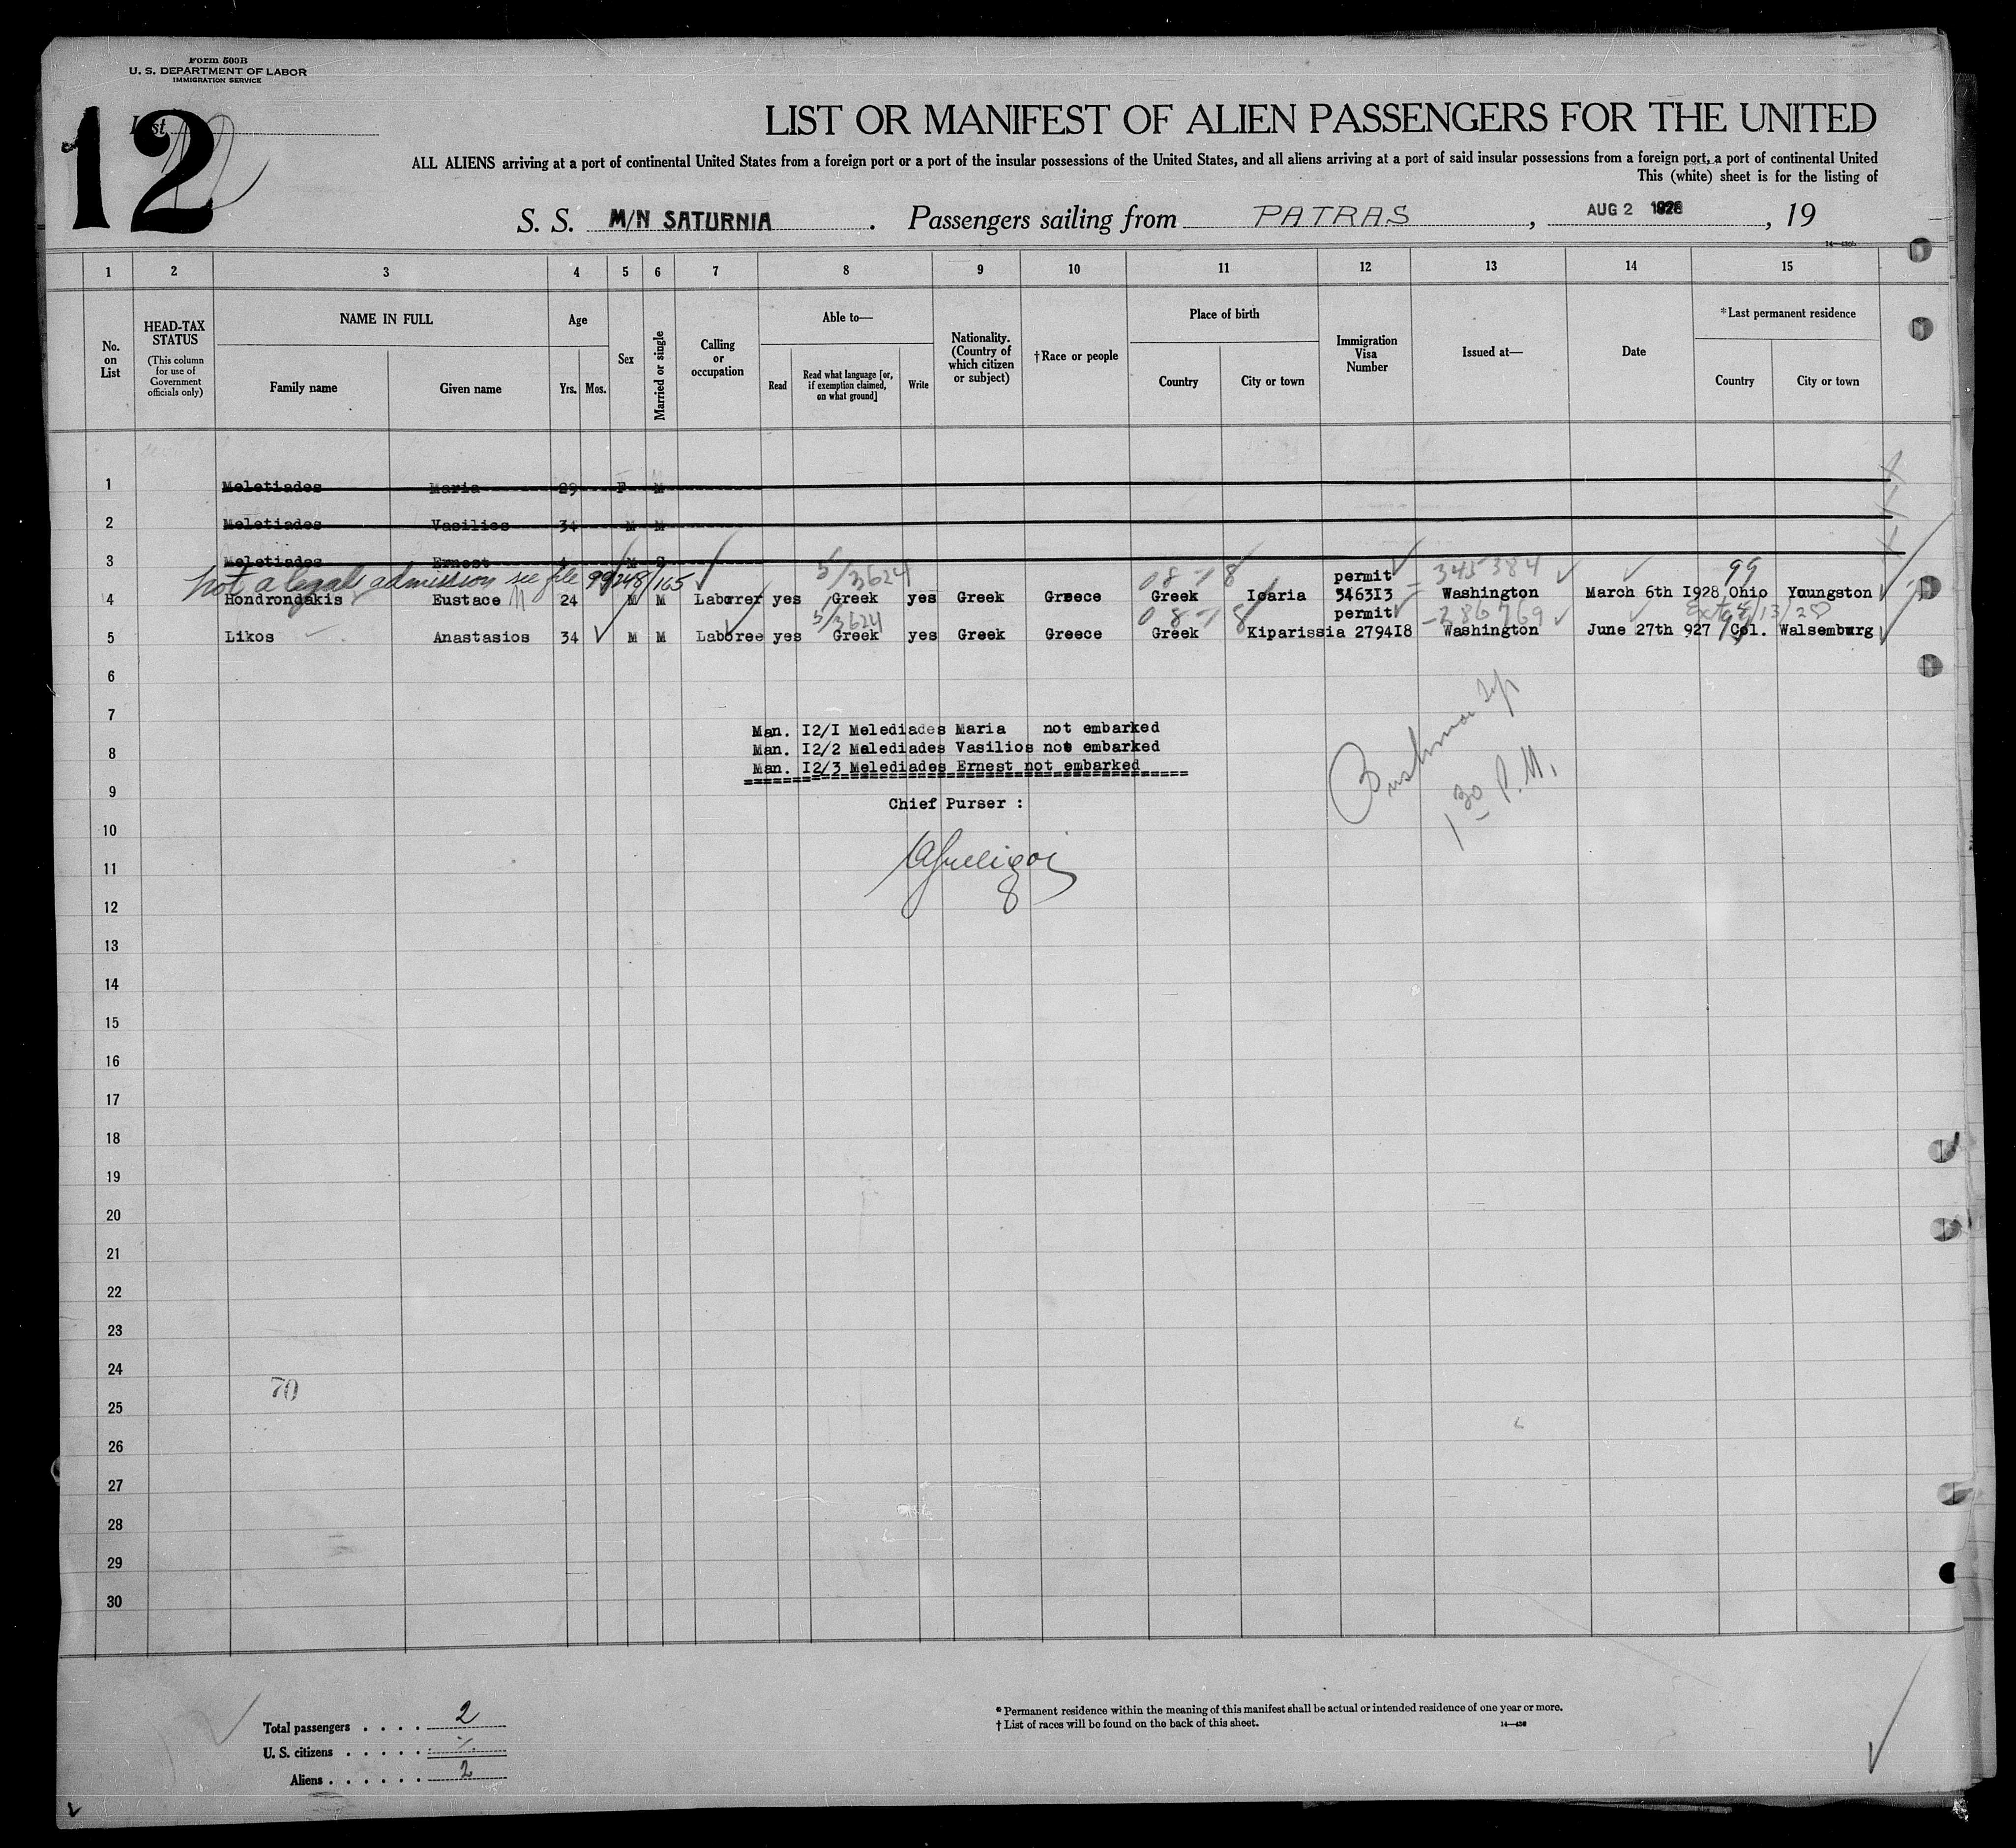 Form 500B
U. S. DEPARTMENT OF LABOR
IMMIGRATION SERVICE
12
List
LIST OR MANIFEST OF ALIEN PASSENGERS FOR THE UNITED
ALL ALIENS arriving at a port of continental United States from a foreign port or a port of the insular possessions of the United States, and all aliens arriving at a port of said insular possessions from a foreign port, a port of continental United
This (white) sheet is for the listing of
S. S. M/N SATURNIA . Passengers sailing from PATRAS , AUG 2 1928 , 19
1 2 3 4 5 6 7 8 9 10 11 12 13 14 15
No. on List
HEAD-TAX STATUS
(This column for use of Government officials only)
NAME IN FULL
Family name
Given name
Age
Yrs. Mos.
Sex
Married or single
Calling or occupation
Able to—
Read
Read what language [or, if exemption claimed, on what ground]
Write
Nationality. (Country of which citizen or subject)
†Race or people
Place of birth
Country
City or town
Immigration Visa Number
Issued at—
Date
*Last permanent residence
Country
City or town
1 Meletiades Maria 29 F M
2 Meletiades Vasilios 34 M M
3 Meletiades Ernest 4 M S
Not a legal admission see file 99248/165
5/3624 08-18 permit 345384 99
4 Hondrondakis Eustace 24 M M Laborer yes Greek yes Greek Greece Greek Icaria 346313 Washington March 6th I928 Ohio Youngston
5/3624 08-18 permit -286769
5 Likos Anastasios 34 M M Laboree yes Greek yes Greek Greece Greek Kiparissia 2794I8 Washington June 27th 927 Col. Walsemburg
6
7
Man. I2/I Melediades Maria not embarked
8
Man. I2/2 Melediades Vasilios not embarked
Man. I2/3 Melediades Ernest not embarked
9
Chief Purser :
1 30 P.M.
10
11
12
13
14
15
16
17
18
19
20
21
22
23
24
70
25
26
27
28
29
30
Total passengers . . . . 2
U. S. citizens . . . . .
Aliens . . . . . . 2
* Permanent residence within the meaning of this manifest shall be actual or intended residence of one year or more.
† List of races will be found on the back of this sheet.
14—430